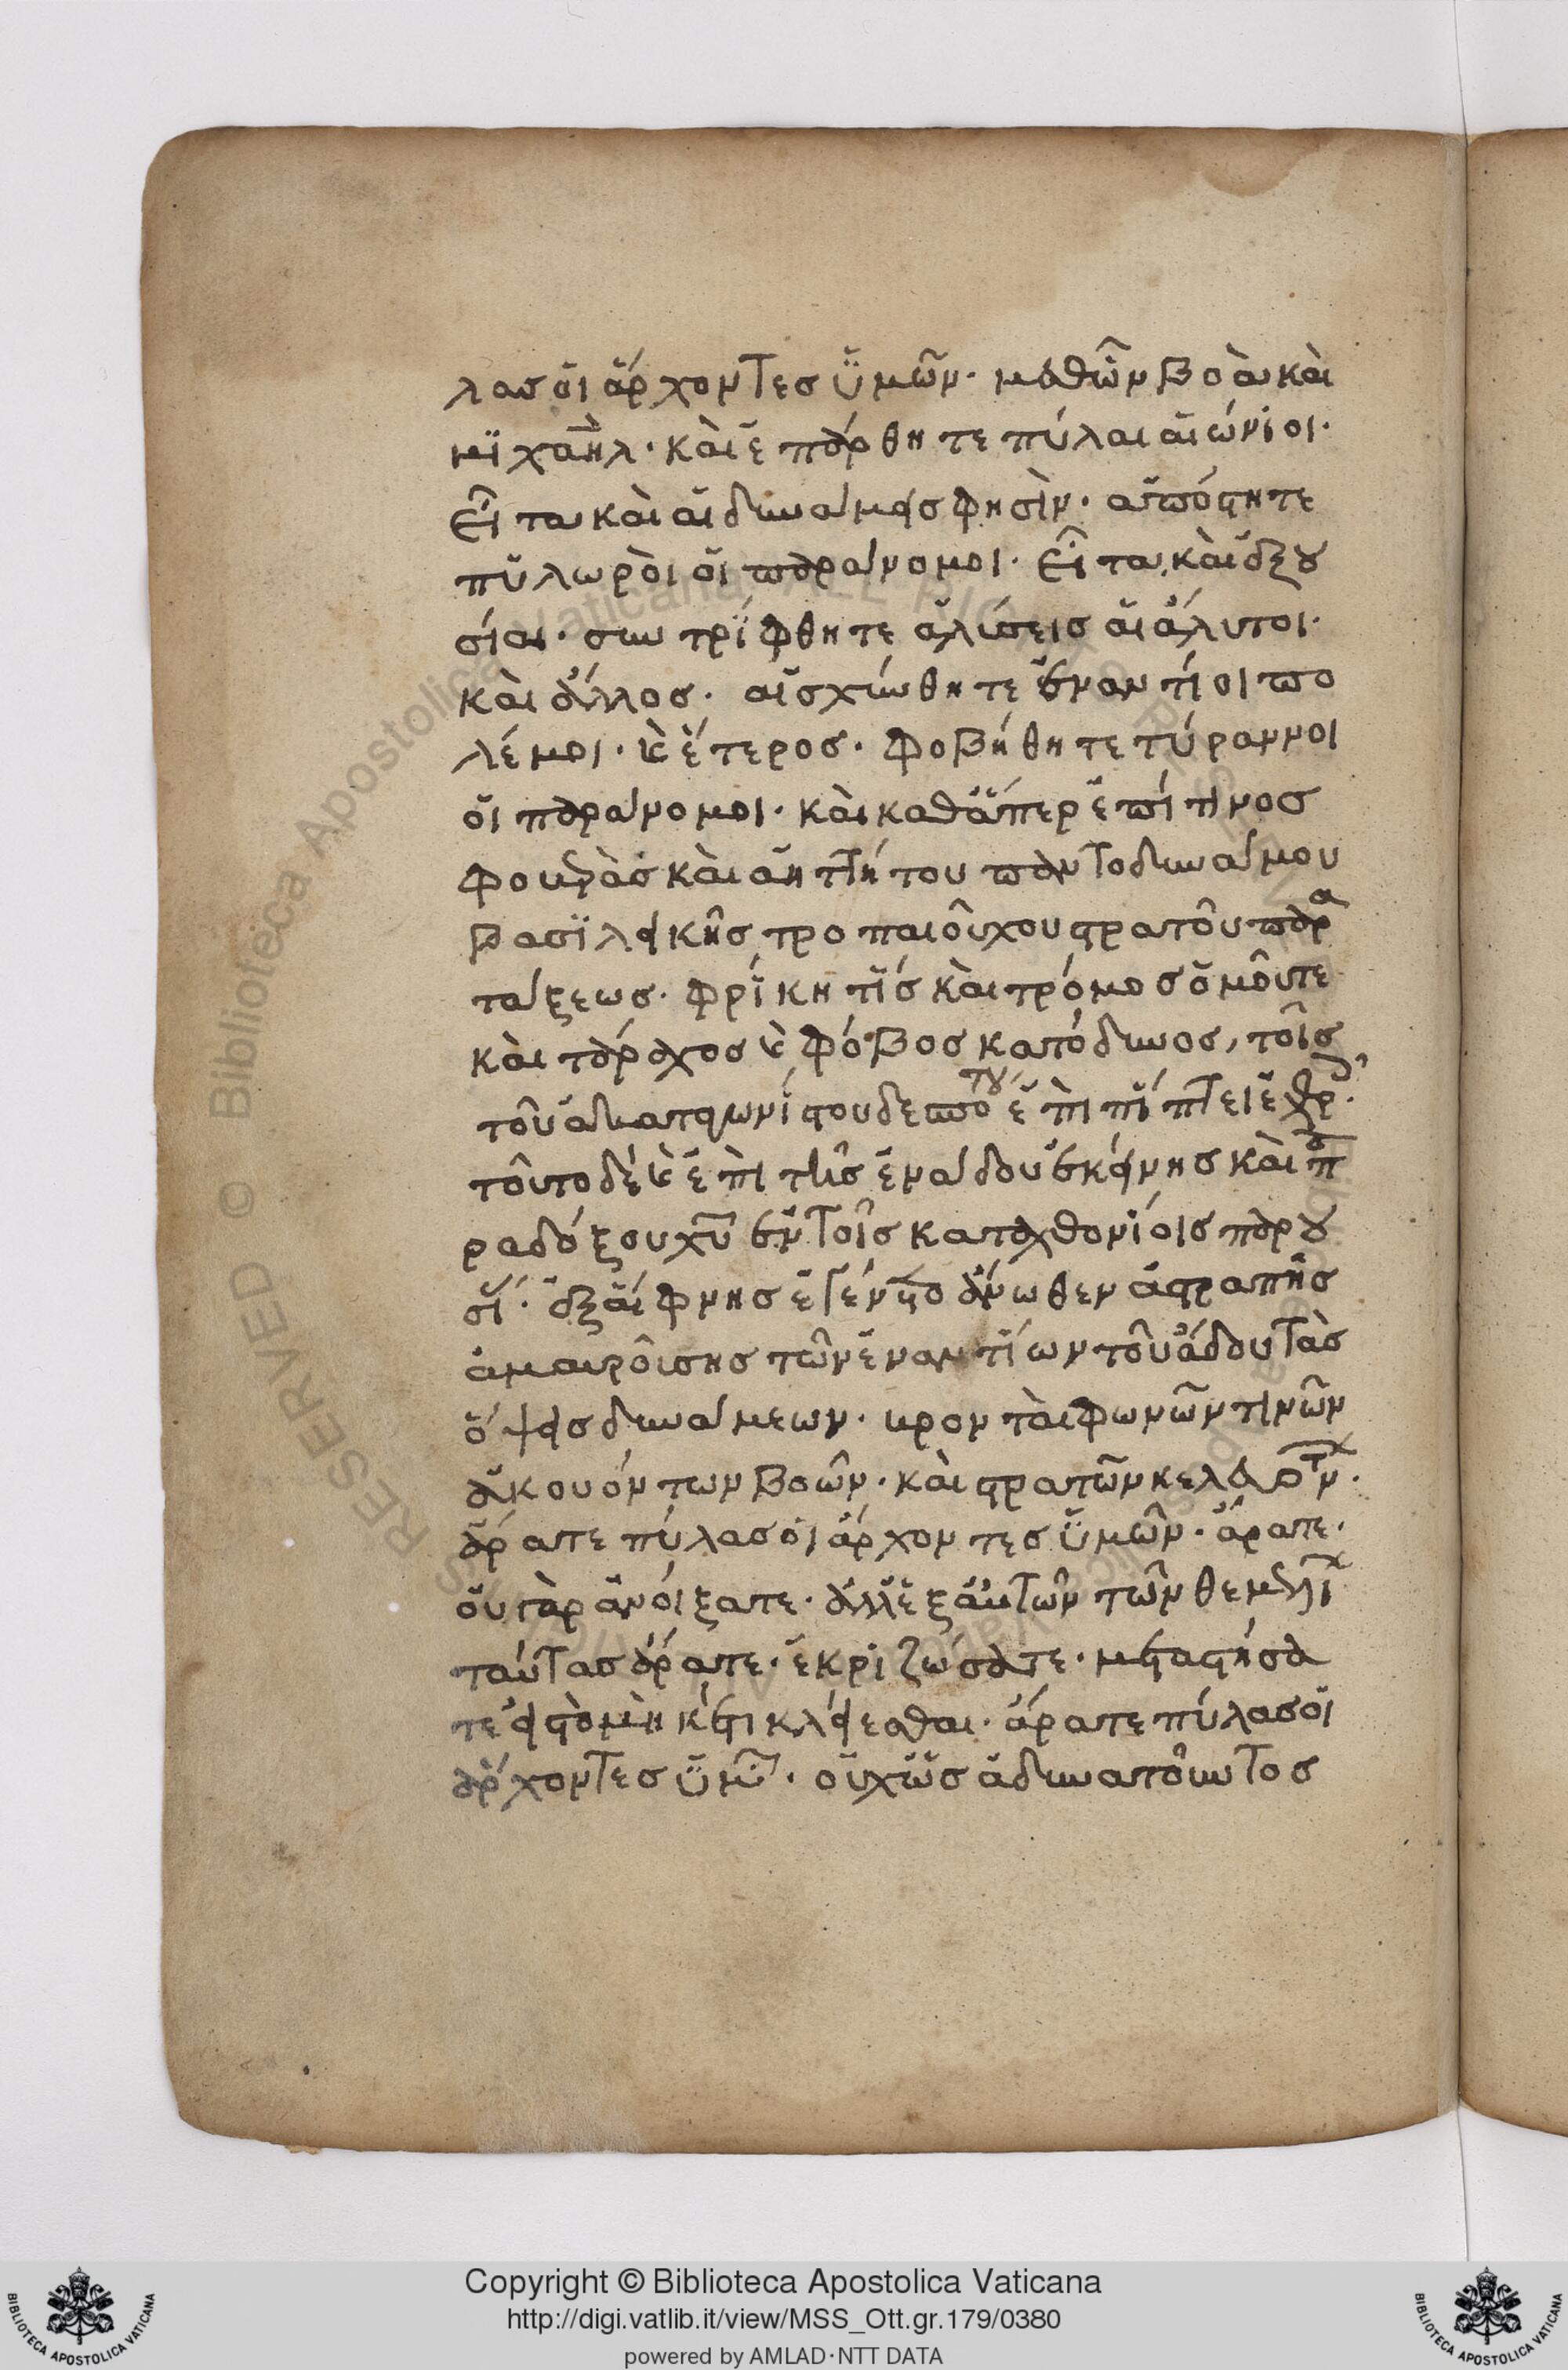 λας οἱ ἄρχοντες ὑμῶν· μεθ' ὧν βοᾶ καὶ
μιχαὴλ· καὶ ἐπάρθητε πύλαι αἰώνιοι·
εἶτα καὶ αἱ δυνάμεις φησὶν· ἀπόστητε
πυλωροὶ οἱ παράνομοι· εἶτα καὶ ἐξου
σίαι· συντρίφθητε ἁλύσεις αἱ ἄλυτοι·
καὶ ἄλλος· αἰσχύνθητε ἐναντίοι πο
λέμιοι· καὶ ἕτερος· φοβήθητε τύραννοι
οἱ παράνομοι· καὶ καθάπερ ἐπί τινος
φοβερᾶς καὶ ἀηττήτου παντοδυνάμου
βασιλικῆς τροπαιούχου στρατοῦ παρα
τάξεως· φρίκη τίς καὶ τρόμος ὁμοῦ τε
καὶ τάραχος καὶ φόβος κατόδυνος, τοῖς
τοῦ ἀκαταγωνίστου δεσπότου ἐπιπίπτει ἐχθρ
τοῦτο δὲ καὶ ἐπὶ τῆς ἐν ἅδου ἐκείνης καὶ πα
ραδόξου χυ ἐν τοῖς καταχθονίοις παρου
σί· ἐξαίφνης ἐγένετο ἄνωθεν ἀστραπῆς
ἀμαυρούσης τῶν ἐναντίων τοῦ ἅδου τὰς
ὄψεις δυνάμεων· βρονταὶ φωνῶν τινῶν
ἀκουόντων βοῶν· καὶ στρατῶν κελευόντων·
ἄρατε πύλας οἱ ἄρχοντες ὑμῶν· ἄρατε·
οὐ γὰρ ἀνοίξατε· ἀλλ' ἐξ αὐτῶν τῶν θεμελί
ταύτας ἄρατε· ἐκριζώσατε· μεταστήσα
τε εἰς τὸ μηκέτι κλείεσθαι· ἄρατε πύλας οἱ
ἄρχοντες ὑμῶν· οὐχ ὡς ἀδυνατοῦντος
Copyright © Biblioteca Apostolica Vaticana
http://digi.vatlib.it/view/MSS_Ott.gr.179/0380
powered by AMLAD·NTT DATA